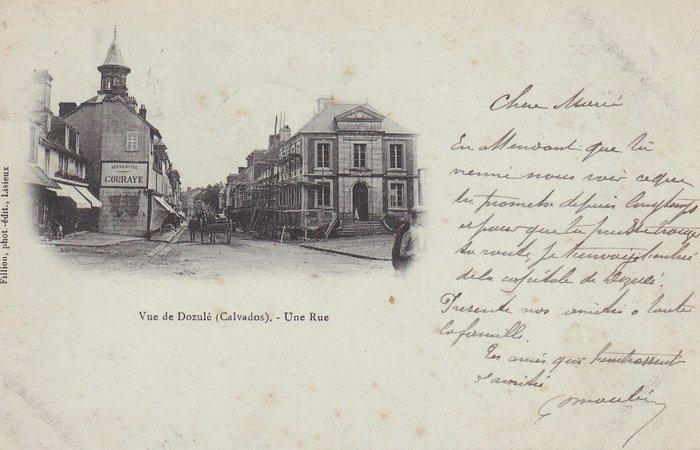 Fillion, phot-édit., Lisieux
NOUVEAUTÉS
COURAYE
Vue de Dozulé (Calvados). - Une Rue
Chere Marie
En attendant que tu
vienne nous voir ce que
tu promets depuis longtemps
et pour que tu puisse trouver
ta route, je t'envoie
de la capitale de Dozulé.
Presente nos amitiés a toute
la famille.
Tes amis qui t'embrassent
d'amitié